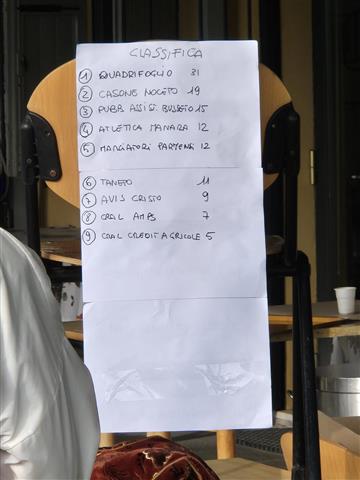 CLASSIFICA
1 QUADRIFOGLIO 31
2 CASONE NOCETO 19
3 PUBB. ASSIS. BUSSETO 15
4 ATLETICA MANARA 12
5 MARCIATORI PARMENSI 12
6 TANETO 11
7 AVIS CRISTO 9
8 CRAL AMPS 7
9 CRAL CREDIT AGRICOLE 5